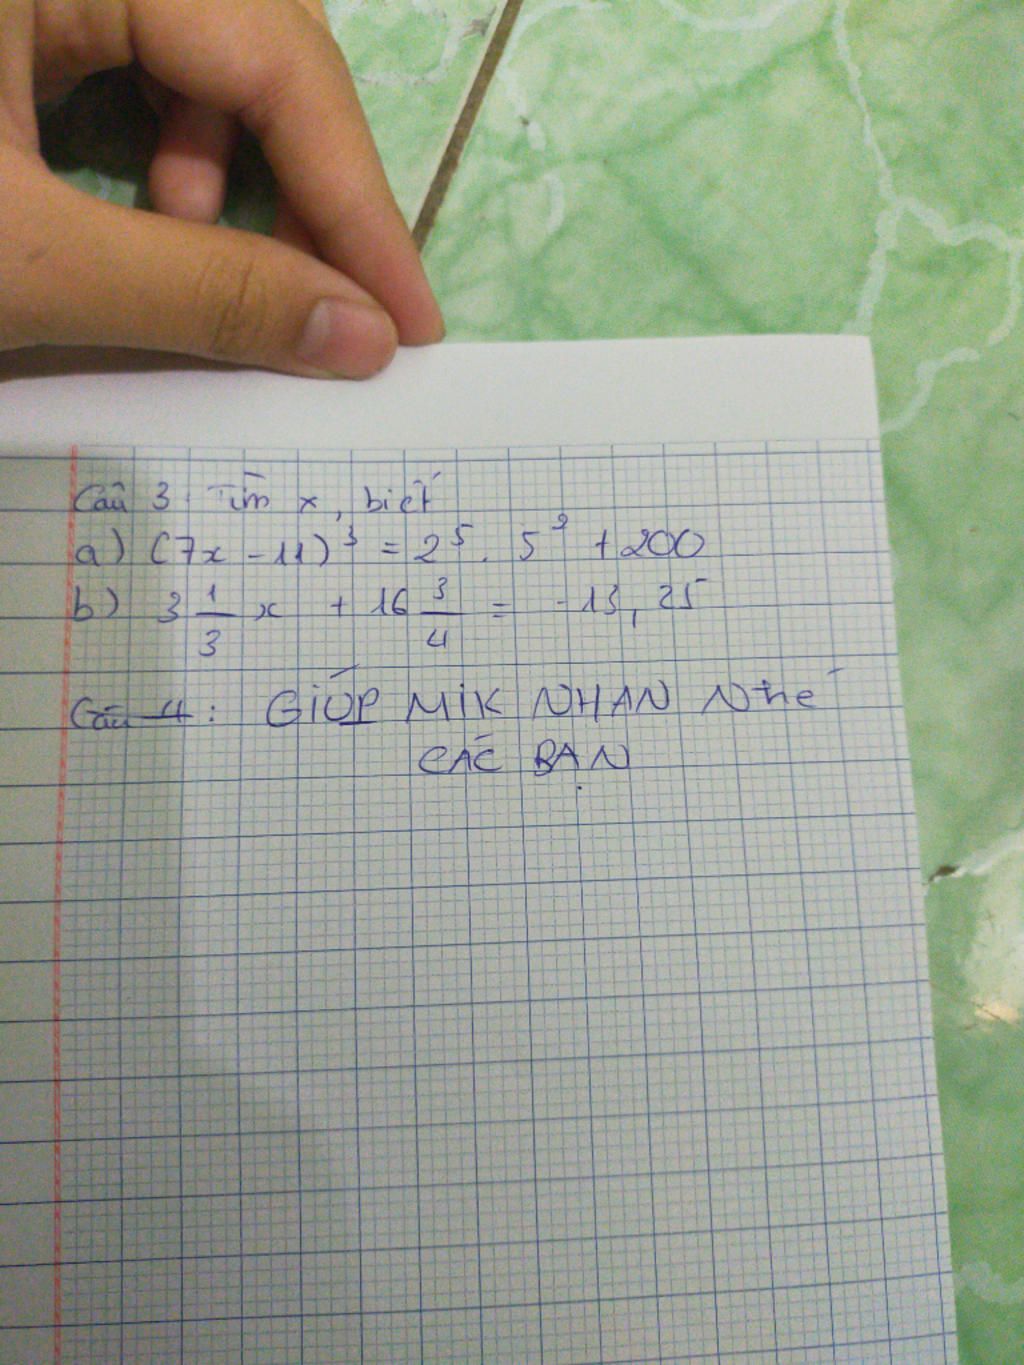 Câu 3. Tìm x, biết
a) (7x - 11)³ = 2⁵ . 5² + 200
b) 3 1/3 x + 16 3/4 = -13,25
Câu 4: GIÚP MIK NHAN Nhé
CÁC BẠN